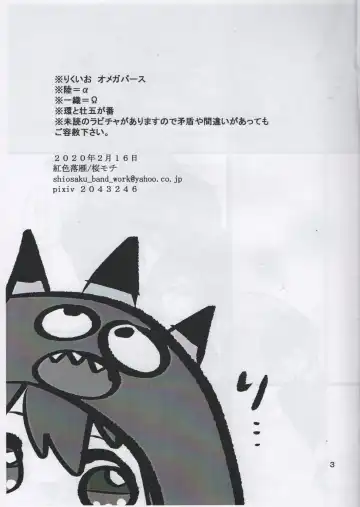 ※りくいお オメガバース
※陸＝α
※一織＝Ω
※環と壮五が番
※未読のラビチャがありますので矛盾や間違いがあっても
ご容赦下さい。
２０２０年２月１６日
紅色落雁/桜モチ
shiosaku_band_work@yahoo.co.jp
pixiv ２０４３２４６
り…
3